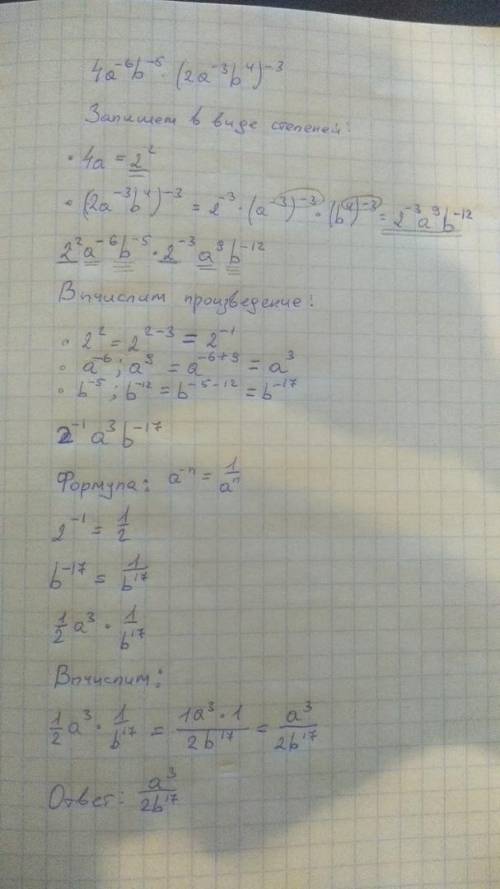 4a⁻⁶b⁻⁵ · (2a⁻³b⁴)⁻³
Запишем в виде степеней:
• 4a = 2²
• (2a⁻³b⁴)⁻³ = 2⁻³ · (a⁻³)⁻³ · (b⁴)⁻³ = 2⁻³a⁹b⁻¹²
2²a⁻⁶b⁻⁵ · 2⁻³a⁹b⁻¹²
Вычислим произведение:
• 2² = 2²⁻³ = 2⁻¹
• a⁻⁶; a⁹ = a⁻⁶⁺⁹ = a³
• b⁻⁵; b⁻¹² = b⁻⁵⁻¹² = b⁻¹⁷
2⁻¹a³b⁻¹⁷
Формула: a⁻ⁿ = 1/aⁿ
2⁻¹ = 1/2
b⁻¹⁷ = 1/b¹⁷
1/2 a³ · 1/b¹⁷
Вычислим:
1/2 a³ · 1/b¹⁷ = 1a³ · 1/2b¹⁷ = a³/2b¹⁷
Ответ: a³/2b¹⁷